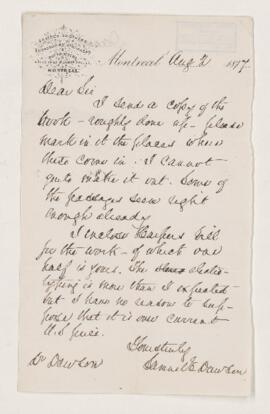 MONTREAL
Montreal Aug 2 1877
Dear Sir
I send a copy of the
book - roughly done up - please
mark in it the places where
these come in. I cannot
quite make it out. Some of
the passages seem right
enough already
I enclose Harpers bill
for the work - of which one
half is yours. The
typing is more than I expected
but I have no reason to sup-
pose that it is over current
U.S. price.
Yours truly
Samuel E. Dawson
Dr Dawson